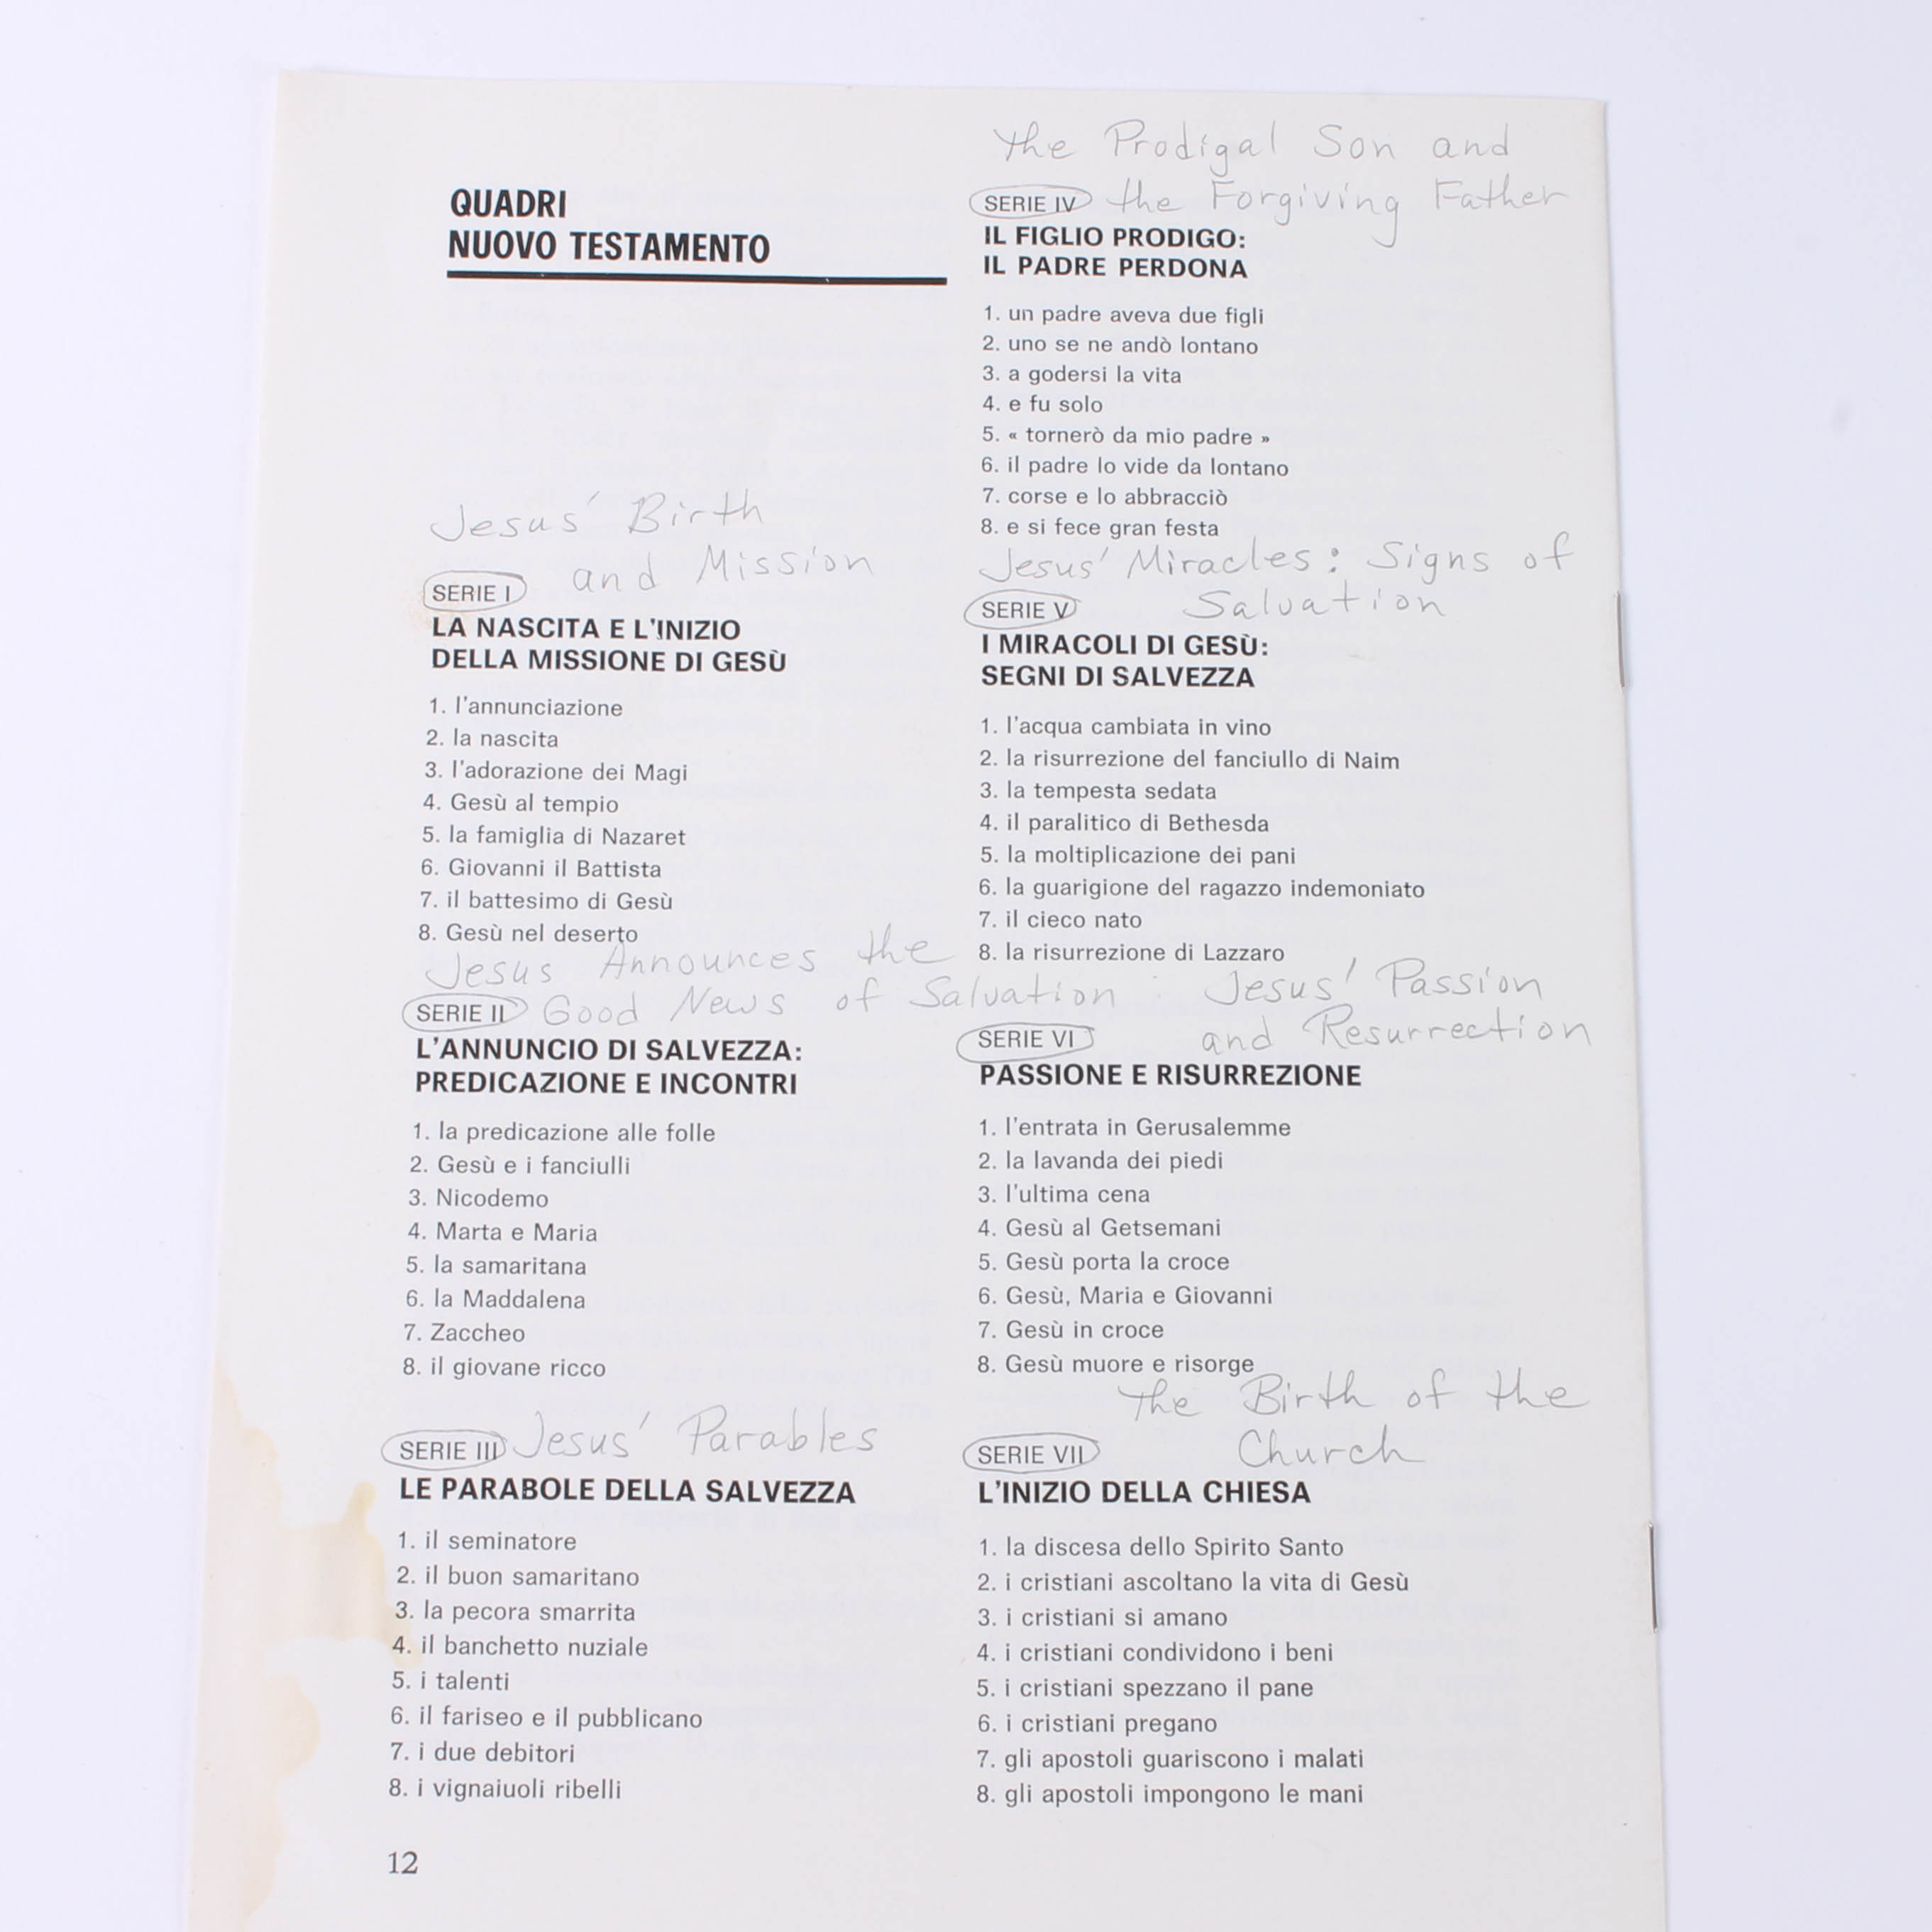 QUADRI
NUOVO TESTAMENTO
Jesus' Birth
and Mission
SERIE I
LA NASCITA E L'INIZIO
DELLA MISSIONE DI GESÙ
1. l'annunciazione
2. la nascita
3. l'adorazione dei Magi
4. Gesù al tempio
5. la famiglia di Nazaret
6. Giovanni il Battista
7. il battesimo di Gesù
8. Gesù nel deserto
Jesus Announces the
SERIE II Good News of Salvation
L'ANNUNCIO DI SALVEZZA:
PREDICAZIONE E INCONTRI
1. la predicazione alle folle
2. Gesù e i fanciulli
3. Nicodemo
4. Marta e Maria
5. la samaritana
6. la Maddalena
7. Zaccheo
8. il giovane ricco
SERIE III Jesus' Parables
LE PARABOLE DELLA SALVEZZA
1. il seminatore
2. il buon samaritano
3. la pecora smarrita
4. il banchetto nuziale
5. i talenti
6. il fariseo e il pubblicano
7. i due debitori
8. i vignaiuoli ribelli
12
The Prodigal Son and
SERIE IV the Forgiving Father
IL FIGLIO PRODIGO:
IL PADRE PERDONA
1. un padre aveva due figli
2. uno se ne andò lontano
3. a godersi la vita
4. e fu solo
5. « tornerò da mio padre »
6. il padre lo vide da lontano
7. corse e lo abbracciò
8. e si fece gran festa
Jesus' Miracles: Signs of
SERIE V Salvation
I MIRACOLI DI GESÙ:
SEGNI DI SALVEZZA
1. l'acqua cambiata in vino
2. la risurrezione del fanciullo di Naim
3. la tempesta sedata
4. il paralitico di Bethesda
5. la moltiplicazione dei pani
6. la guarigione del ragazzo indemoniato
7. il cieco nato
8. la risurrezione di Lazzaro
Jesus' Passion
SERIE VI and Resurrection
PASSIONE E RISURREZIONE
1. l'entrata in Gerusalemme
2. la lavanda dei piedi
3. l'ultima cena
4. Gesù al Getsemani
5. Gesù porta la croce
6. Gesù, Maria e Giovanni
7. Gesù in croce
8. Gesù muore e risorge
The Birth of the
SERIE VII Church
L'INIZIO DELLA CHIESA
1. la discesa dello Spirito Santo
2. i cristiani ascoltano la vita di Gesù
3. i cristiani si amano
4. i cristiani condividono i beni
5. i cristiani spezzano il pane
6. i cristiani pregano
7. gli apostoli guariscono i malati
8. gli apostoli impongono le mani